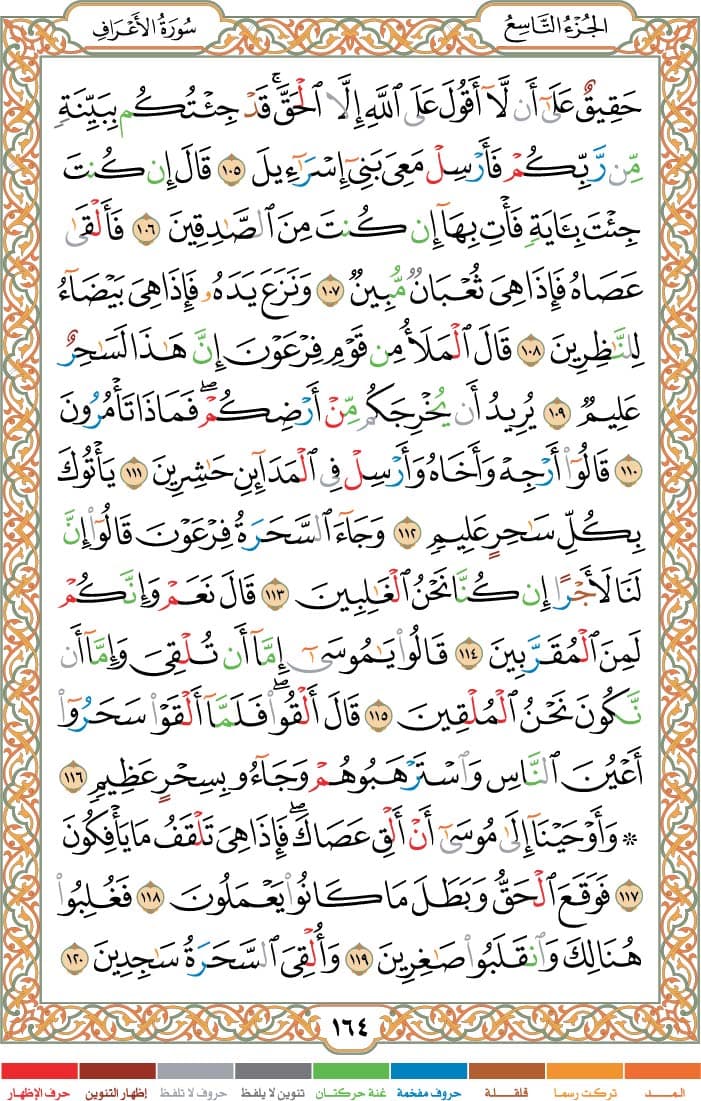 الجُزْءُ التَّاسِعُ
سُورَةُ الأَعْرَافِ
حَقِيقٌ عَلَىٰٓ أَن لَّآ أَقُولَ عَلَى ٱللَّهِ إِلَّا ٱلْحَقَّۚ قَدْ جِئْتُكُم بِبَيِّنَةٍ
مِّن رَّبِّكُمْ فَأَرْسِلْ مَعِىَ بَنِىٓ إِسْرَٰٓءِيلَ ١٠٥ قَالَ إِن كُنتَ
جِئْتَ بِـَٔايَةٍ فَأْتِ بِهَآ إِن كُنتَ مِنَ ٱلصَّٰدِقِينَ ١٠٦ فَأَلْقَىٰ
عَصَاهُ فَإِذَا هِىَ ثُعْبَانٌ مُّبِينٌ ١٠٧ وَنَزَعَ يَدَهُۥ فَإِذَا هِىَ بَيْضَآءُ
لِلنَّٰظِرِينَ ١٠٨ قَالَ ٱلْمَلَأُ مِن قَوْمِ فِرْعَوْنَ إِنَّ هَٰذَا لَسَٰحِرٌ
عَلِيمٌ ١٠٩ يُرِيدُ أَن يُخْرِجَكُم مِّنْ أَرْضِكُمْۖ فَمَاذَا تَأْمُرُونَ
١١٠ قَالُوٓا۟ أَرْجِهْ وَأَخَاهُ وَأَرْسِلْ فِى ٱلْمَدَآئِنِ حَٰشِرِينَ ١١١ يَأْتُوكَ
بِكُلِّ سَٰحِرٍ عَلِيمٍ ١١٢ وَجَآءَ ٱلسَّحَرَةُ فِرْعَوْنَ قَالُوٓا۟ إِنَّ
لَنَا لَأَجْرًا إِن كُنَّا نَحْنُ ٱلْغَٰلِبِينَ ١١٣ قَالَ نَعَمْ وَإِنَّكُمْ
لَمِنَ ٱلْمُقَرَّبِينَ ١١٤ قَالُوا۟ يَٰمُوسَىٰٓ إِمَّآ أَن تُلْقِىَ وَإِمَّآ أَن
نَّكُونَ نَحْنُ ٱلْمُلْقِينَ ١١٥ قَالَ أَلْقُوا۟ۖ فَلَمَّآ أَلْقَوْا۟ سَحَرُوٓا۟
أَعْيُنَ ٱلنَّاسِ وَٱسْتَرْهَبُوهُمْ وَجَآءُو بِسِحْرٍ عَظِيمٍ ١١٦
* وَأَوْحَيْنَآ إِلَىٰ مُوسَىٰٓ أَنْ أَلْقِ عَصَاكَۖ فَإِذَا هِىَ تَلْقَفُ مَا يَأْفِكُونَ
١١٧ فَوَقَعَ ٱلْحَقُّ وَبَطَلَ مَا كَانُوا۟ يَعْمَلُونَ ١١٨ فَغُلِبُوا۟
هُنَالِكَ وَٱنقَلَبُوا۟ صَٰغِرِينَ ١١٩ وَأُلْقِىَ ٱلسَّحَرَةُ سَٰجِدِينَ ١٢٠
١٦٤
المــد تركت رسما قلقلة حروف مفخمة غنة حركتان تنوين لا يلفظ حروف لا تلفظ إظهار التنوين حرف الإظهار